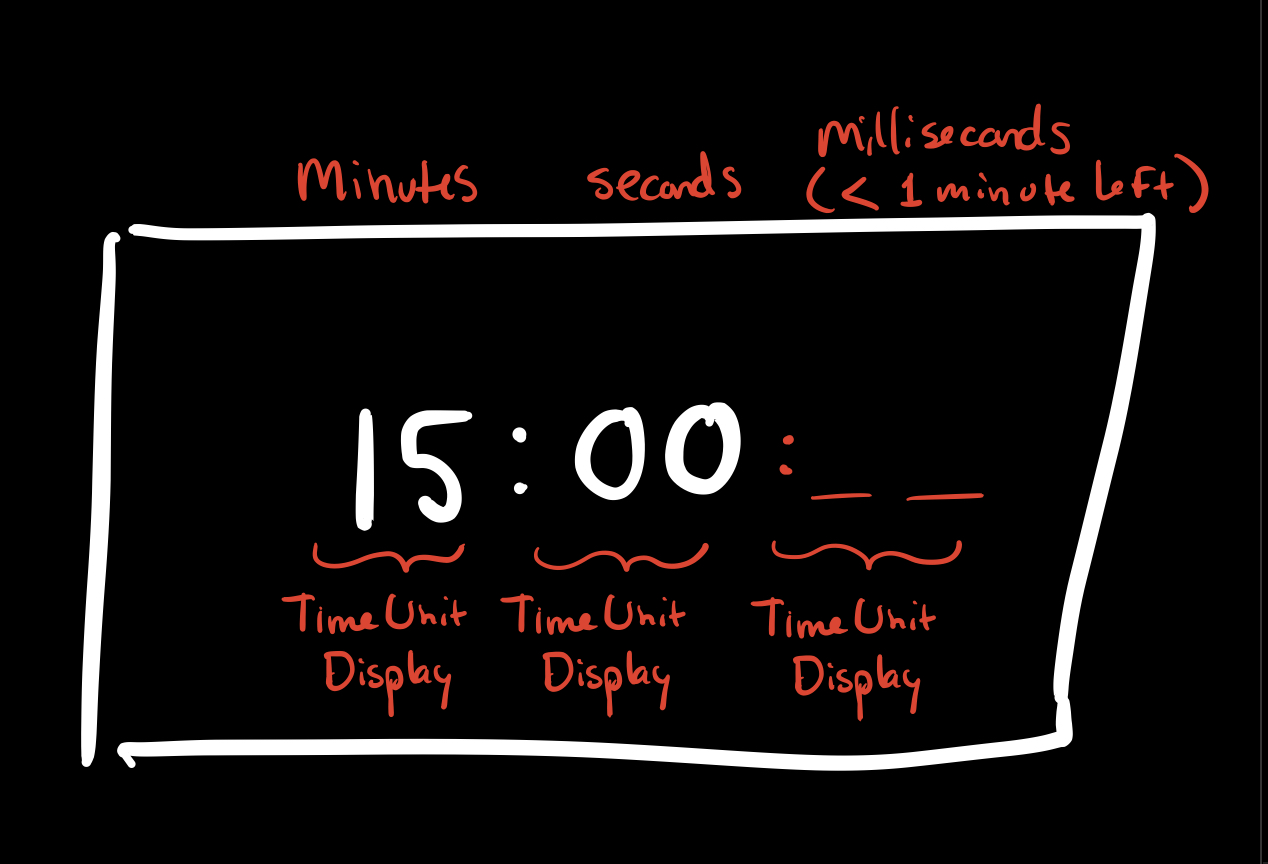 Minutes
seconds
milliseconds
(< 1 minute left)
15:00:_ _
Time Unit
Display
Time Unit
Display
Time Unit
Display